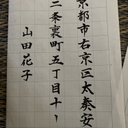 京都市右京区太秦安
二条裏町五丁目十
山田花子